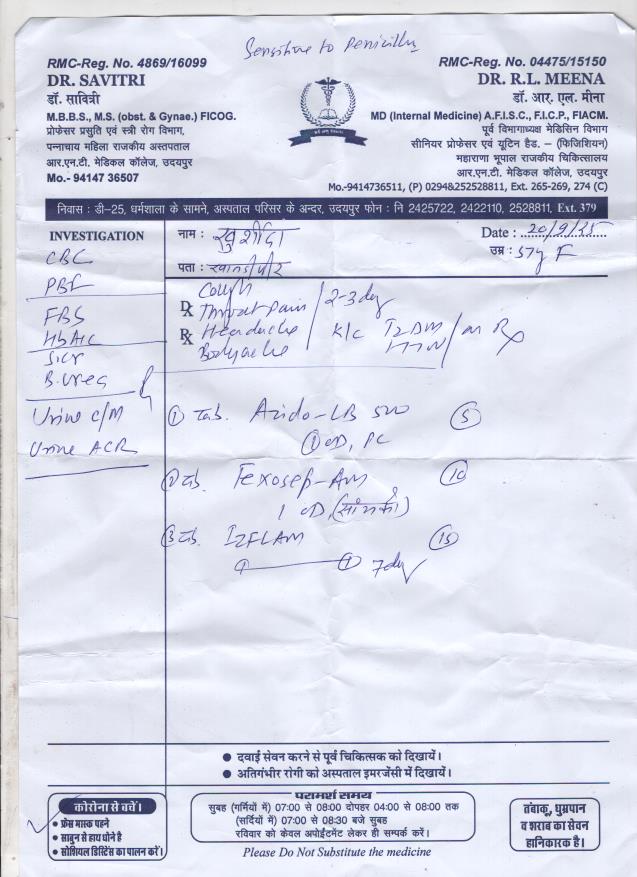 Sensitive to Penicillin
RMC-Reg. No. 4869/16099
DR. SAVITRI
डॉ. सावित्री
M.B.B.S., M.S. (obst. & Gynae.) FICOG.
प्रोफेसर प्रसुति एवं स्त्री रोग विभाग,
पन्नाधाय महिला राजकीय अस्पताल
आर.एन.टी. मेडिकल कॉलेज, उदयपुर
Mo.- 94147 36507
RMC-Reg. No. 04475/15150
DR. R.L. MEENA
डॉ. आर. एल. मीना
MD (Internal Medicine) A.F.I.S.C., F.I.C.P., FIACM.
पूर्व विभागाध्यक्ष मेडिसिन विभाग
सीनियर प्रोफेसर एवं यूटिन हैड. – (फिजिशियन)
महाराणा भूपाल राजकीय चिकित्सालय
आर.एन.टी. मेडिकल कॉलेज, उदयपुर
Mo.-9414736511, (P) 02948&252528811, Ext. 265-269, 274 (C)
निवास : डी-25, धर्मशाला के सामने, अस्पताल परिसर के अन्दर, उदयपुर फोन : नि 2425722, 2422110, 2528811, Ext. 379
INVESTIGATION
CBC
PBF
FBS
HbA1C
S.cr
B.urea
Urine C/M
Urine ACR
नाम : खुर्शीदा
Date : 20/9/25
पता :
उम्र : 57y F
Cough
Dx Throat pain / 2-3 day
Rx Headache K/C T2DM / on Rx
Bodyache HTN
① Tab. Azido-LB 500 ⑤
① OD, PC
② Tab. Fexosep-AM ⑩
1 OD, (सांयको)
③ Tab. IZFLAM ⑮
①———① 7 day
● दवाईं सेवन करने से पूर्व चिकित्सक को दिखायें।
● अतिगंभीर रोगी को अस्पताल इमरजेंसी में दिखायें।
कोरोना से बचें।
● फ्रेस मास्क पहने
● साबुन से हाथ धोने है
● सोशियल डिस्टिंस का पालन करें।
परामर्श समय
सुबह (गर्मियों में) 07:00 से 08:00 दोपहर 04:00 से 08:00 तक
(सर्दियों में) 07:00 से 08:30 बजे सुबह
रविवार को केवल अपोईंटमेंट लेकर ही सम्पर्क करें।
Please Do Not Substitute the medicine
तंबाकू, धुम्रपान
व शराब का सेवन
हानिकारक है।